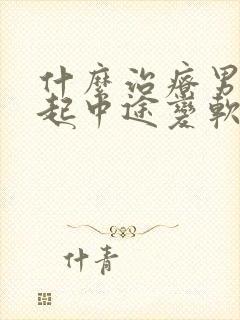 什麼治療男
起中途變軟
什青